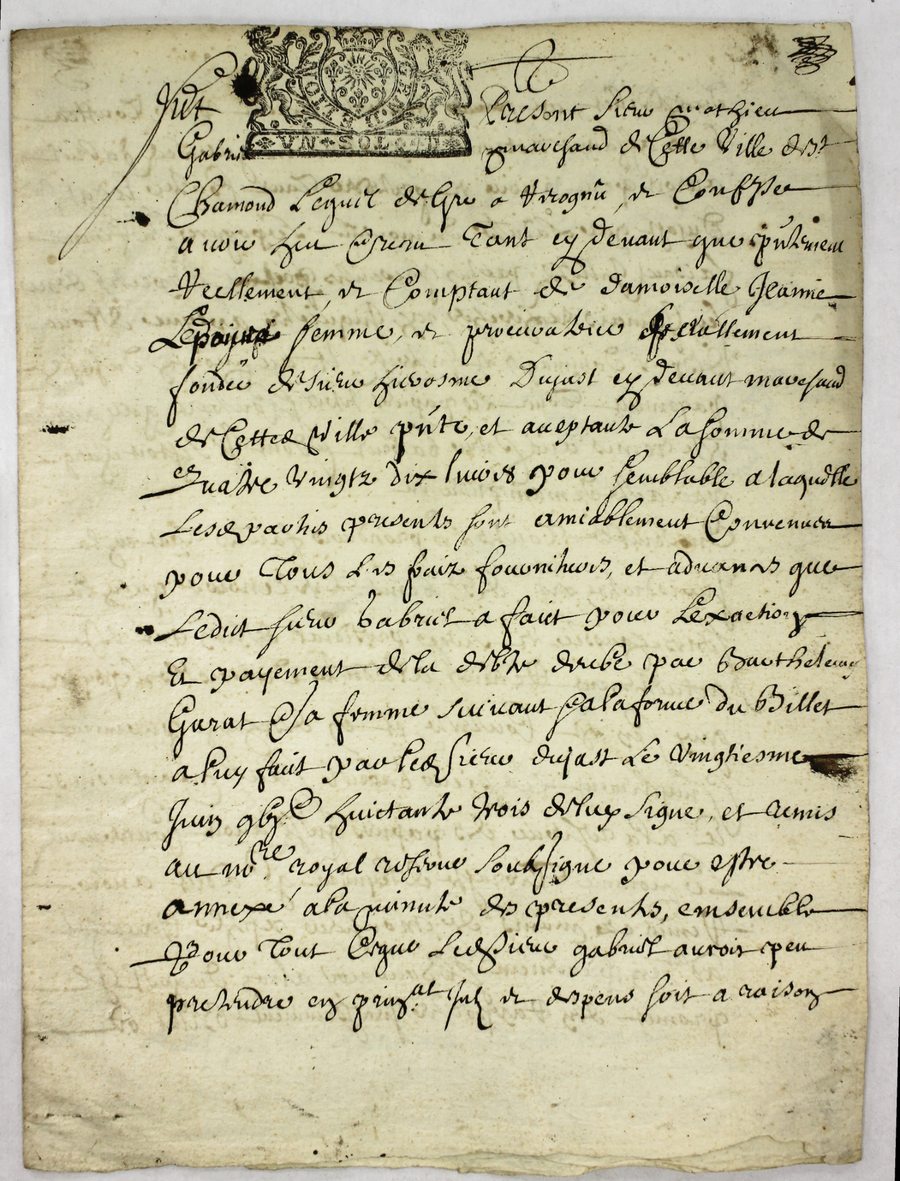 Fut Present sieur mathieu
Gabriel marchand de Cette Ville de St
Chamond Lequel de gre a Recognu, et Confesse
avoir heu et receu Tant cy devant que pntement
Reellement, et Comptant de damoiselle Jeanne
femme, et procuratrice speciallement
fondée de sieur hierosme Dujast cy devant marchand
de Cetted Ville pnte, et aceptante La somme de
quatre Vingtz dix livres pour semblable a laquelle
Lesd parties presentes sont amiablement Convenues
pour Tous Les fraiz fournitures, et advances que
Ledict sieur Gabriel a faict pour Lexaction
Et payement de la debte deube par Barthelemy
Garat & sa femme suivant & a la forme Du Billet
a luy faict par led sieur dujast Le Vingtiesme
Juin huictante trois de luy signe, et remis
au nore royal recevoir soubsigne pour estre
annexé a la minute des presentes, ensemble
Pour Tout Ce que Led sieur gabriel auroit peu
pretendre en prinal et despens soit a raison